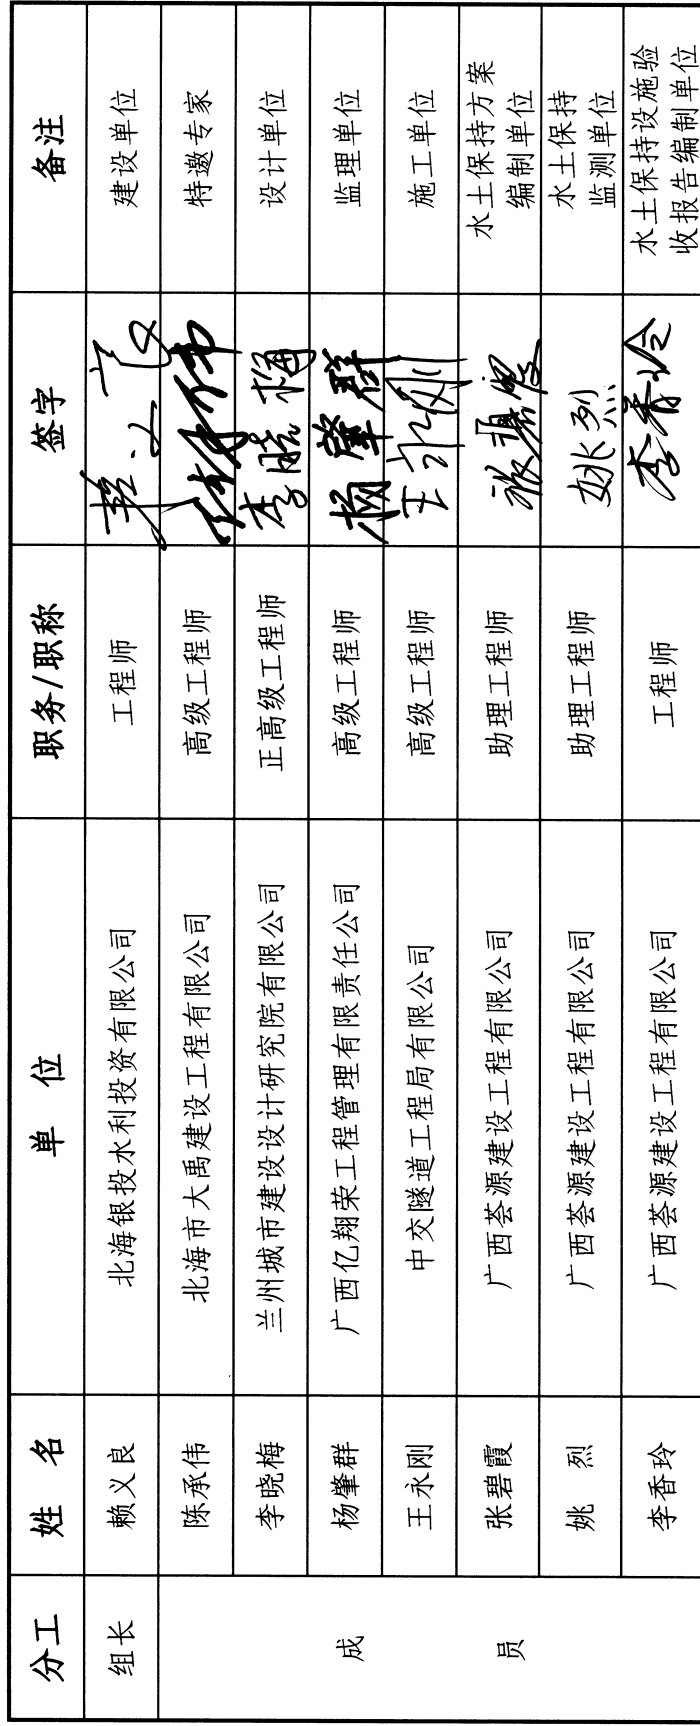 分工 姓 名 单 位 职务/职称 签字 备注
组长 赖义良 北海银投水利投资有限公司 工程师 赖义良 建设单位
成 员 陈承伟 北海市大禹建设工程有限公司 高级工程师 陈承伟 特邀专家
李晓梅 兰州城市建设设计研究院有限公司 正高级工程师 李晓梅 设计单位
杨肇群 广西亿翔荣工程管理有限责任公司 高级工程师 杨肇群 监理单位
王永刚 中交隧道工程局有限公司 高级工程师 王永刚 施工单位
张碧霞 广西荟源建设工程有限公司 助理工程师 张碧霞 水土保持方案
编制单位
姚 烈 广西荟源建设工程有限公司 助理工程师 姚烈 水土保持
监测单位
李香玲 广西荟源建设工程有限公司 工程师 李香玲 水土保持设施验
收报告编制单位